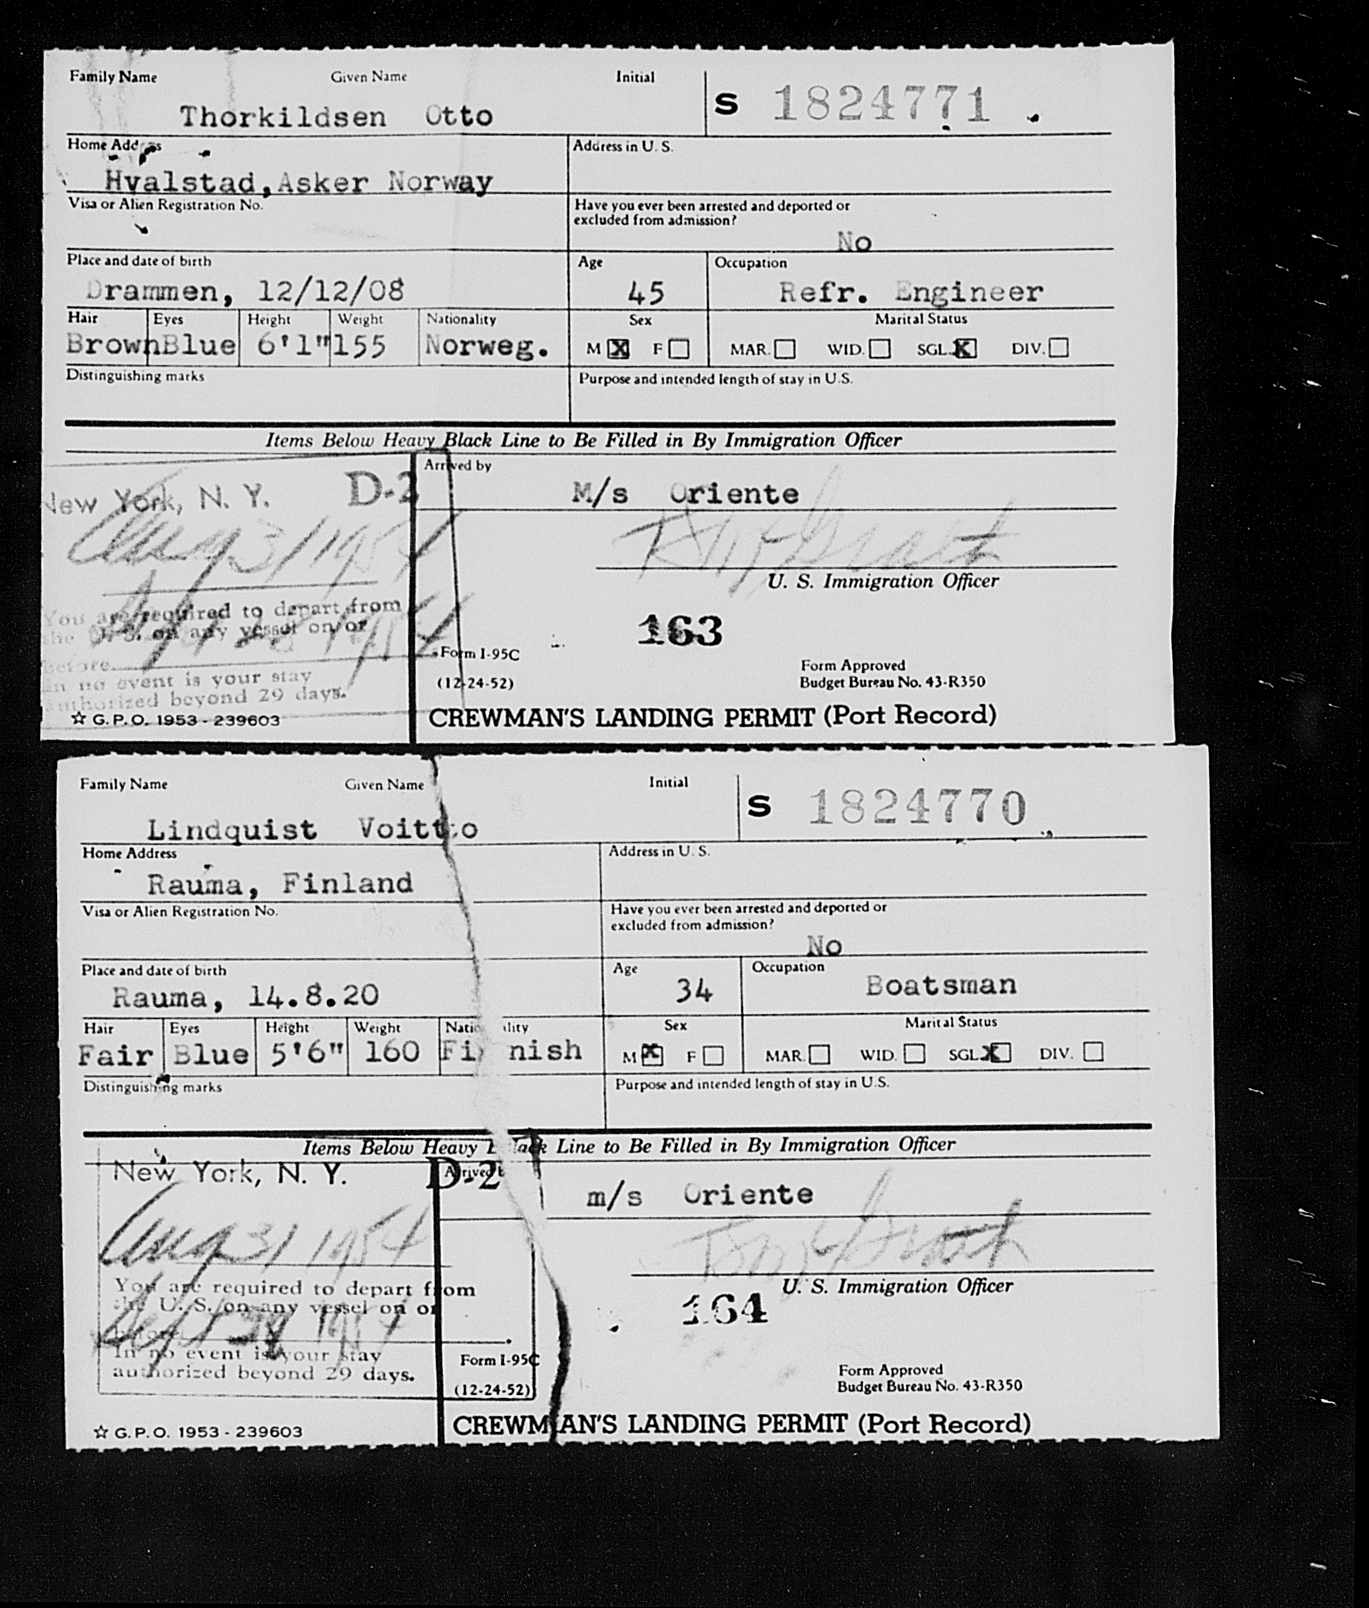 Family Name Given Name Initial
S 1824771
Thorkildsen Otto
Home Address Address in U. S.
Hvalstad,Asker Norway
Visa or Alien Registration No. Have you ever been arrested and deported or
excluded from admission?
No
Place and date of birth Age Occupation
Drammen, 12/12/08 45 Refr. Engineer
Hair Eyes Height Weight Nationality Sex Marital Status
Brown Blue 6'1" 155 Norweg. M X F MAR. WID. SGL. X DIV.
Distinguishing marks Purpose and intended length of stay in U.S.
Items Below Heavy Black Line to Be Filled in By Immigration Officer
Arrived by
New York, N. Y. D-2 M/s Oriente
Aug 31 1954
U. S. Immigration Officer
You are required to depart from
the U. S. on any vessel on or
before
Sept 28 1954
163
in no event is your stay
authorized beyond 29 days.
Form I-95C
(12-24-52)
Form Approved
Budget Bureau No. 43-R350
☆ G.P.O. 1953 - 239603
CREWMAN'S LANDING PERMIT (Port Record)
Family Name Given Name Initial
S 1824770
Lindquist Voitto
Home Address Address in U. S.
Rauma, Finland
Visa or Alien Registration No. Have you ever been arrested and deported or
excluded from admission?
No
Place and date of birth Age Occupation
Rauma, 14.8.20 34 Boatsman
Hair Eyes Height Weight Nationality Sex Marital Status
Fair Blue 5'6" 160 Finnish M X F MAR. WID. SGL. X DIV.
Distinguishing marks Purpose and intended length of stay in U.S.
Items Below Heavy Black Line to Be Filled in By Immigration Officer
New York, N. Y. D-2 Arrived by
m/s Oriente
Aug 31 1954
U. S. Immigration Officer
You are required to depart from
the U. S. on any vessel on or
Sept 28 1954
164
In no event is your stay
authorized beyond 29 days.
Form I-95C
(12-24-52)
Form Approved
Budget Bureau No. 43-R350
☆ G.P.O. 1953 - 239603
CREWMAN'S LANDING PERMIT (Port Record)